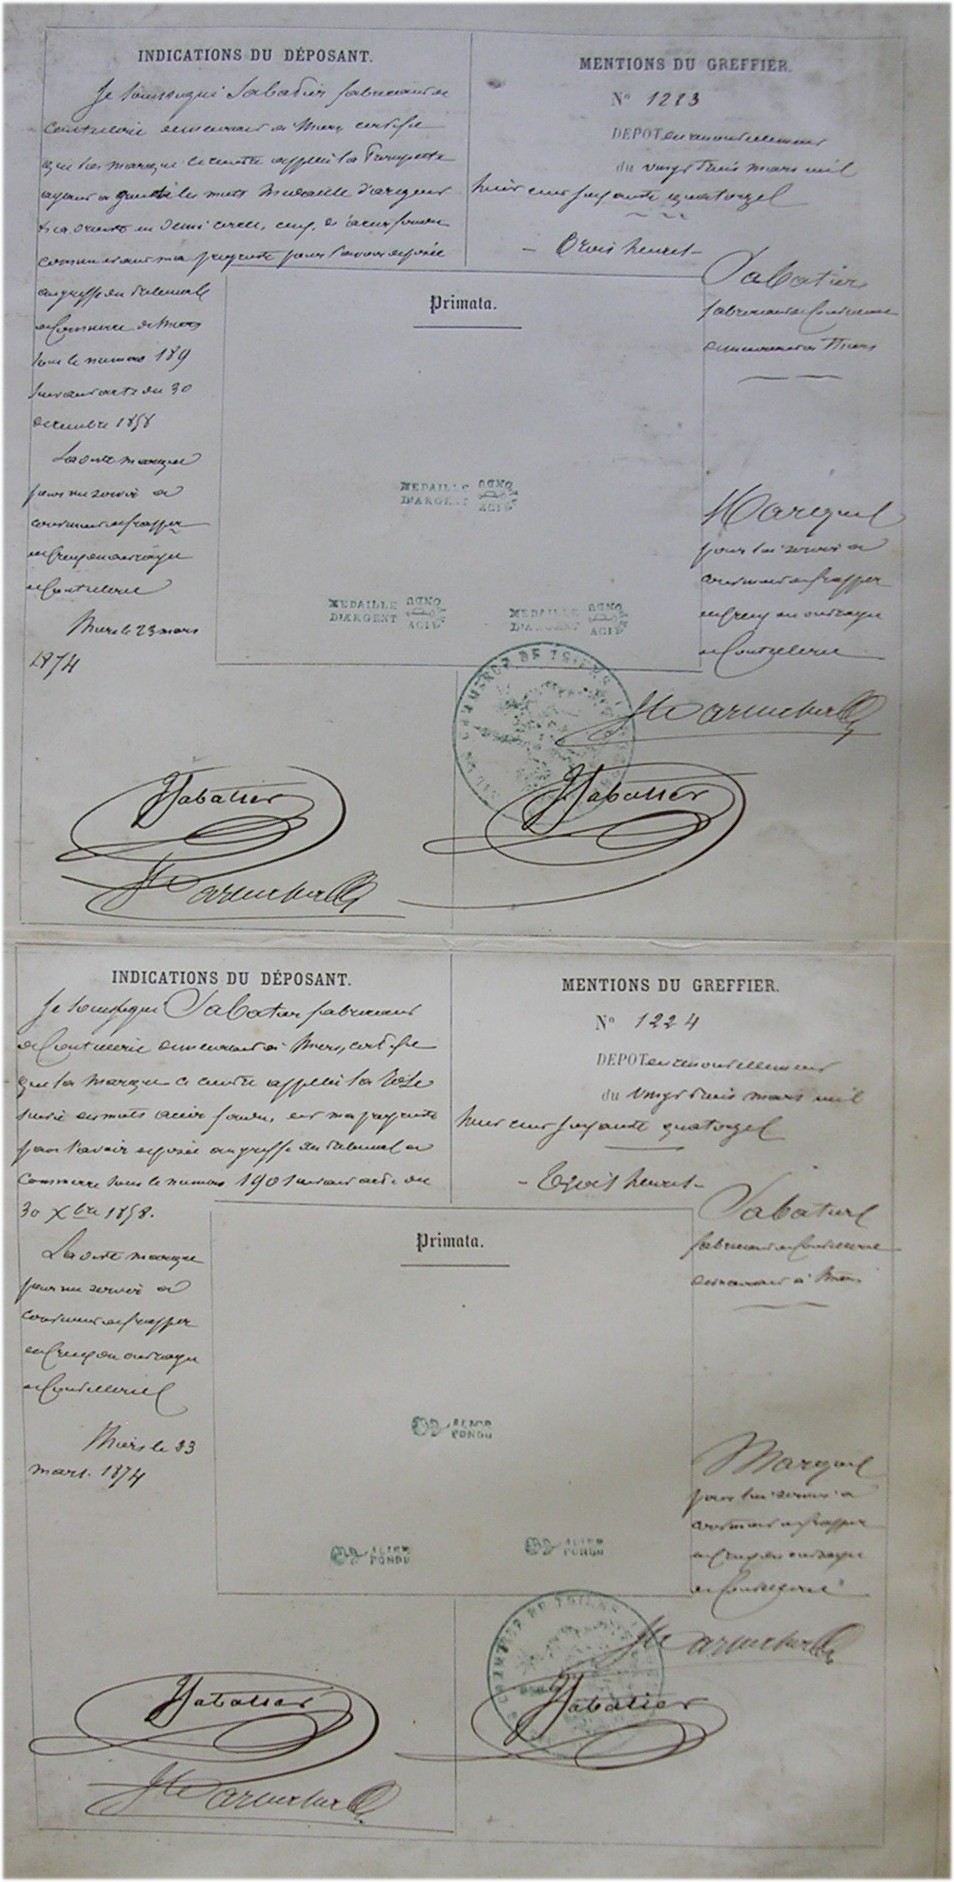 INDICATIONS DU DÉPOSANT.
Je soussigné Sabatier fabricant de
Coutellerie demeurant à Thiers certifie
que la marque ci contre appelée la Trompette
ayant à gauche les mots Medaille d'argent
et à droite en demi cercle, les mots acier fondu
comme étant ma propriété pour l'avoir déposée
au greffe du tribunal
de Commerce de Thiers
sous le numéro 189
suivant acte du 30
décembre 1858
La dite marque
pour me servir à
continuer de frapper
mes ouvrages
de Coutellerie
Thiers le 23 mars
1874
MENTIONS DU GREFFIER.
N° 1223
DEPOT en renouvellement
du vingt trois mars mil
huit cent soixante quatorze
- Trois heures -
Sabatier
fabricant de Coutellerie
demeurant à Thiers
Primata.
MEDAILLE D'ARGENT
FONDU
ACIER
MEDAILLE D'ARGENT
FONDU
ACIER
MEDAILLE D'ARGENT
FONDU
ACIER
Marque
pour lui servir à
continuer de frapper
ouvrages
de Coutellerie
COMMERCE DE THIERS
Sabatier
Sabatier
INDICATIONS DU DÉPOSANT.
Je soussigné Sabatier fabricant
de Coutellerie demeurant à Thiers, certifie
que la marque ci contre appelée la
suivie des mots acier fondu, est ma propriété
pour l'avoir déposée au greffe du tribunal de
Commerce sous le numéro 190 suivant acte du
30 Xbre 1858.
La dite marque
pour me servir à
continuer de frapper
ouvrages
de Coutellerie
Thiers le 23
mars 1874
MENTIONS DU GREFFIER.
N° 1224
DEPOT en renouvellement
du vingt trois mars mil
huit cent soixante quatorze
- Trois heures -
Sabatier
fabricant de Coutellerie
demeurant à Thiers
Primata.
ACIER FONDU
ACIER FONDU
ACIER FONDU
Marque
pour lui servir à
continuer de frapper
ouvrages
de Coutellerie
COMMERCE DE THIERS
Sabatier
Sabatier